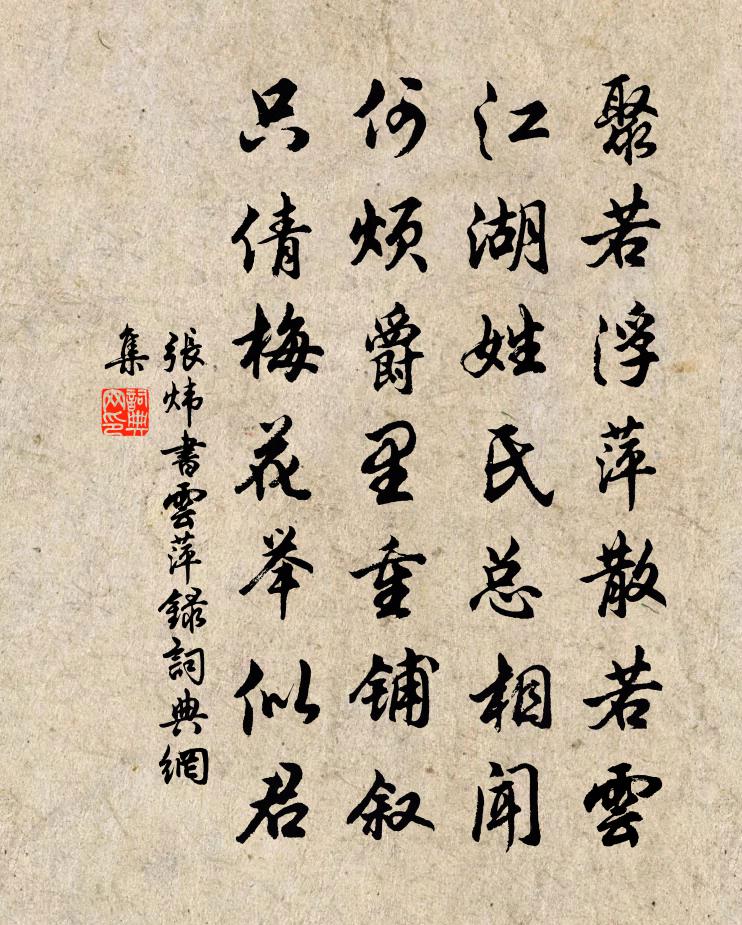 聚若浮萍散若雲
江湖姓氏总相聞
何烦爵里重铺叙
只倩梅花举似君
張炜書雲萍録詞典網
集
詞典
网印